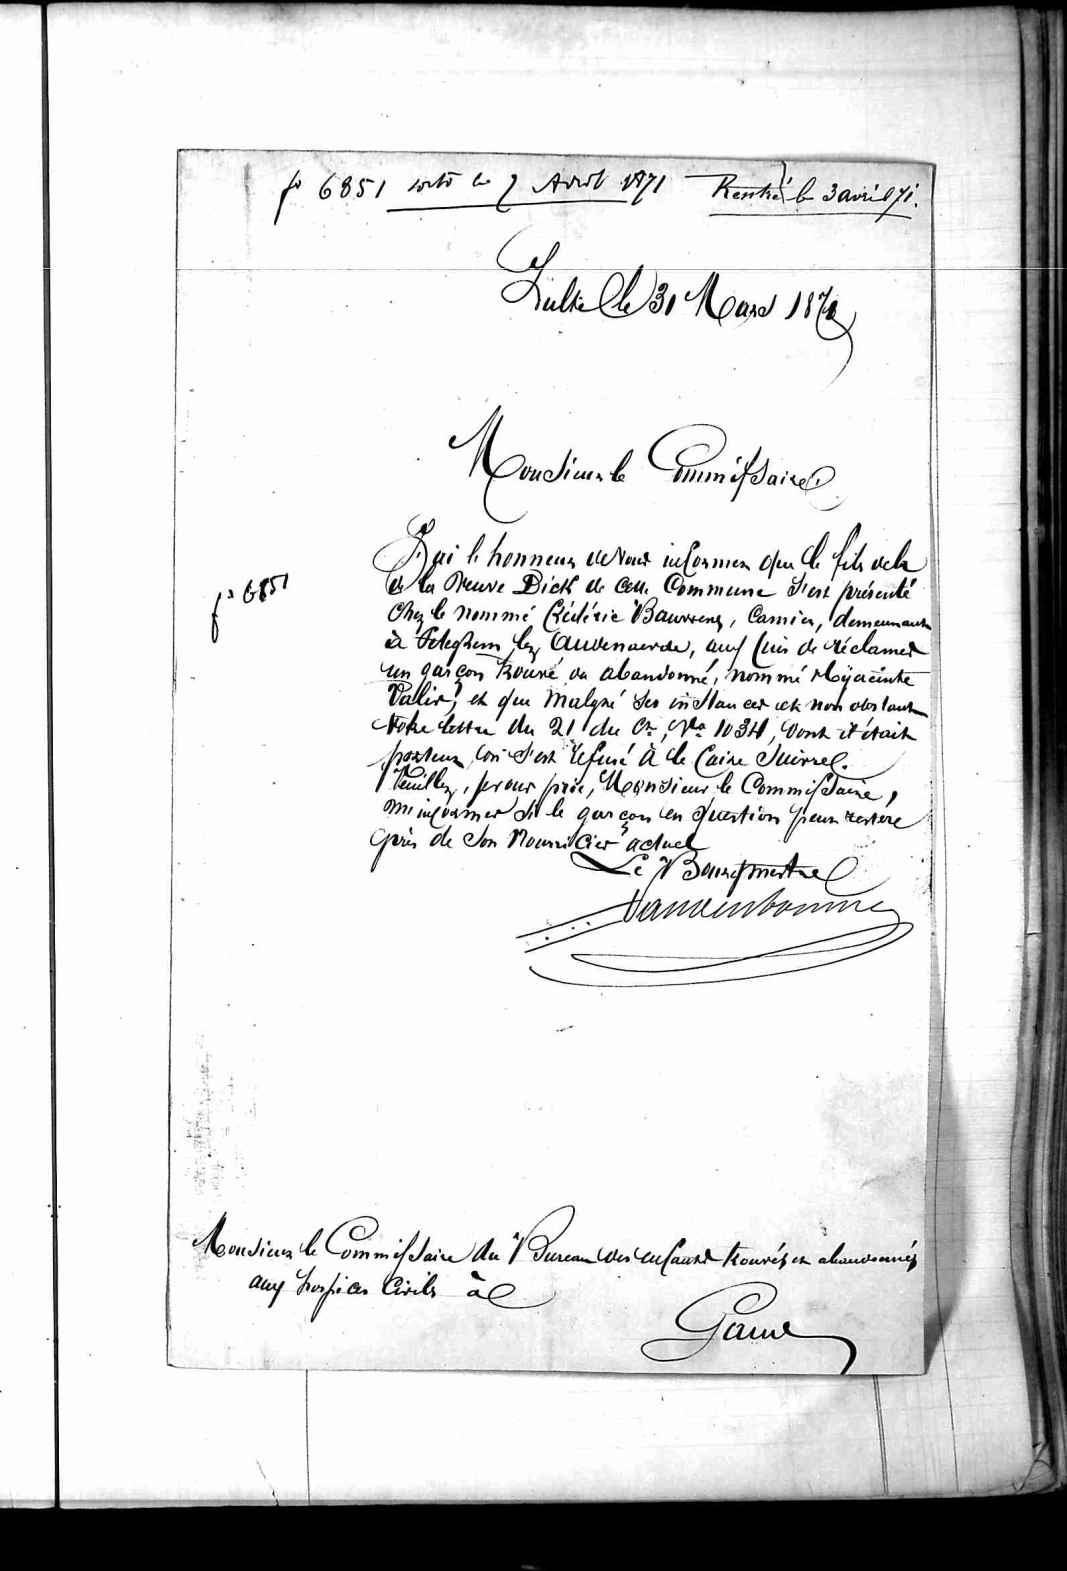 fo 6851 sorti le 7 Avril 1871 Rentré le 3 avril 71.
Zulte le 31 Mars 1871
Monsieur le Commissaire,
J'ai l'honneur de vous informer que le fils de la
de la Veuve Dick de cette Commune s'est présenté
fo 6851
chez le nommé Frédéric Bauwens, Camier, demeurant
à Peteghem lez Audenaerde, aux fins de réclamer
un garçon trouvé ou abandonné, nommé Hyacinte
Valir, et que malgré ses instances et nonobstant
Votre lettre du 21 du Ct, No 1034, dont il était
porteur, on s'est refusé à le faire suivre.
Veuillez, je vous prie, Monsieur le Commissaire,
m'informer si le garçon en question peut restere
près de son Nourricier actuel
Le Bourgmestre
Monsieur le Commissaire du Bureau des enfants trouvés et abandonnés
aux hospices Civils à
Gand